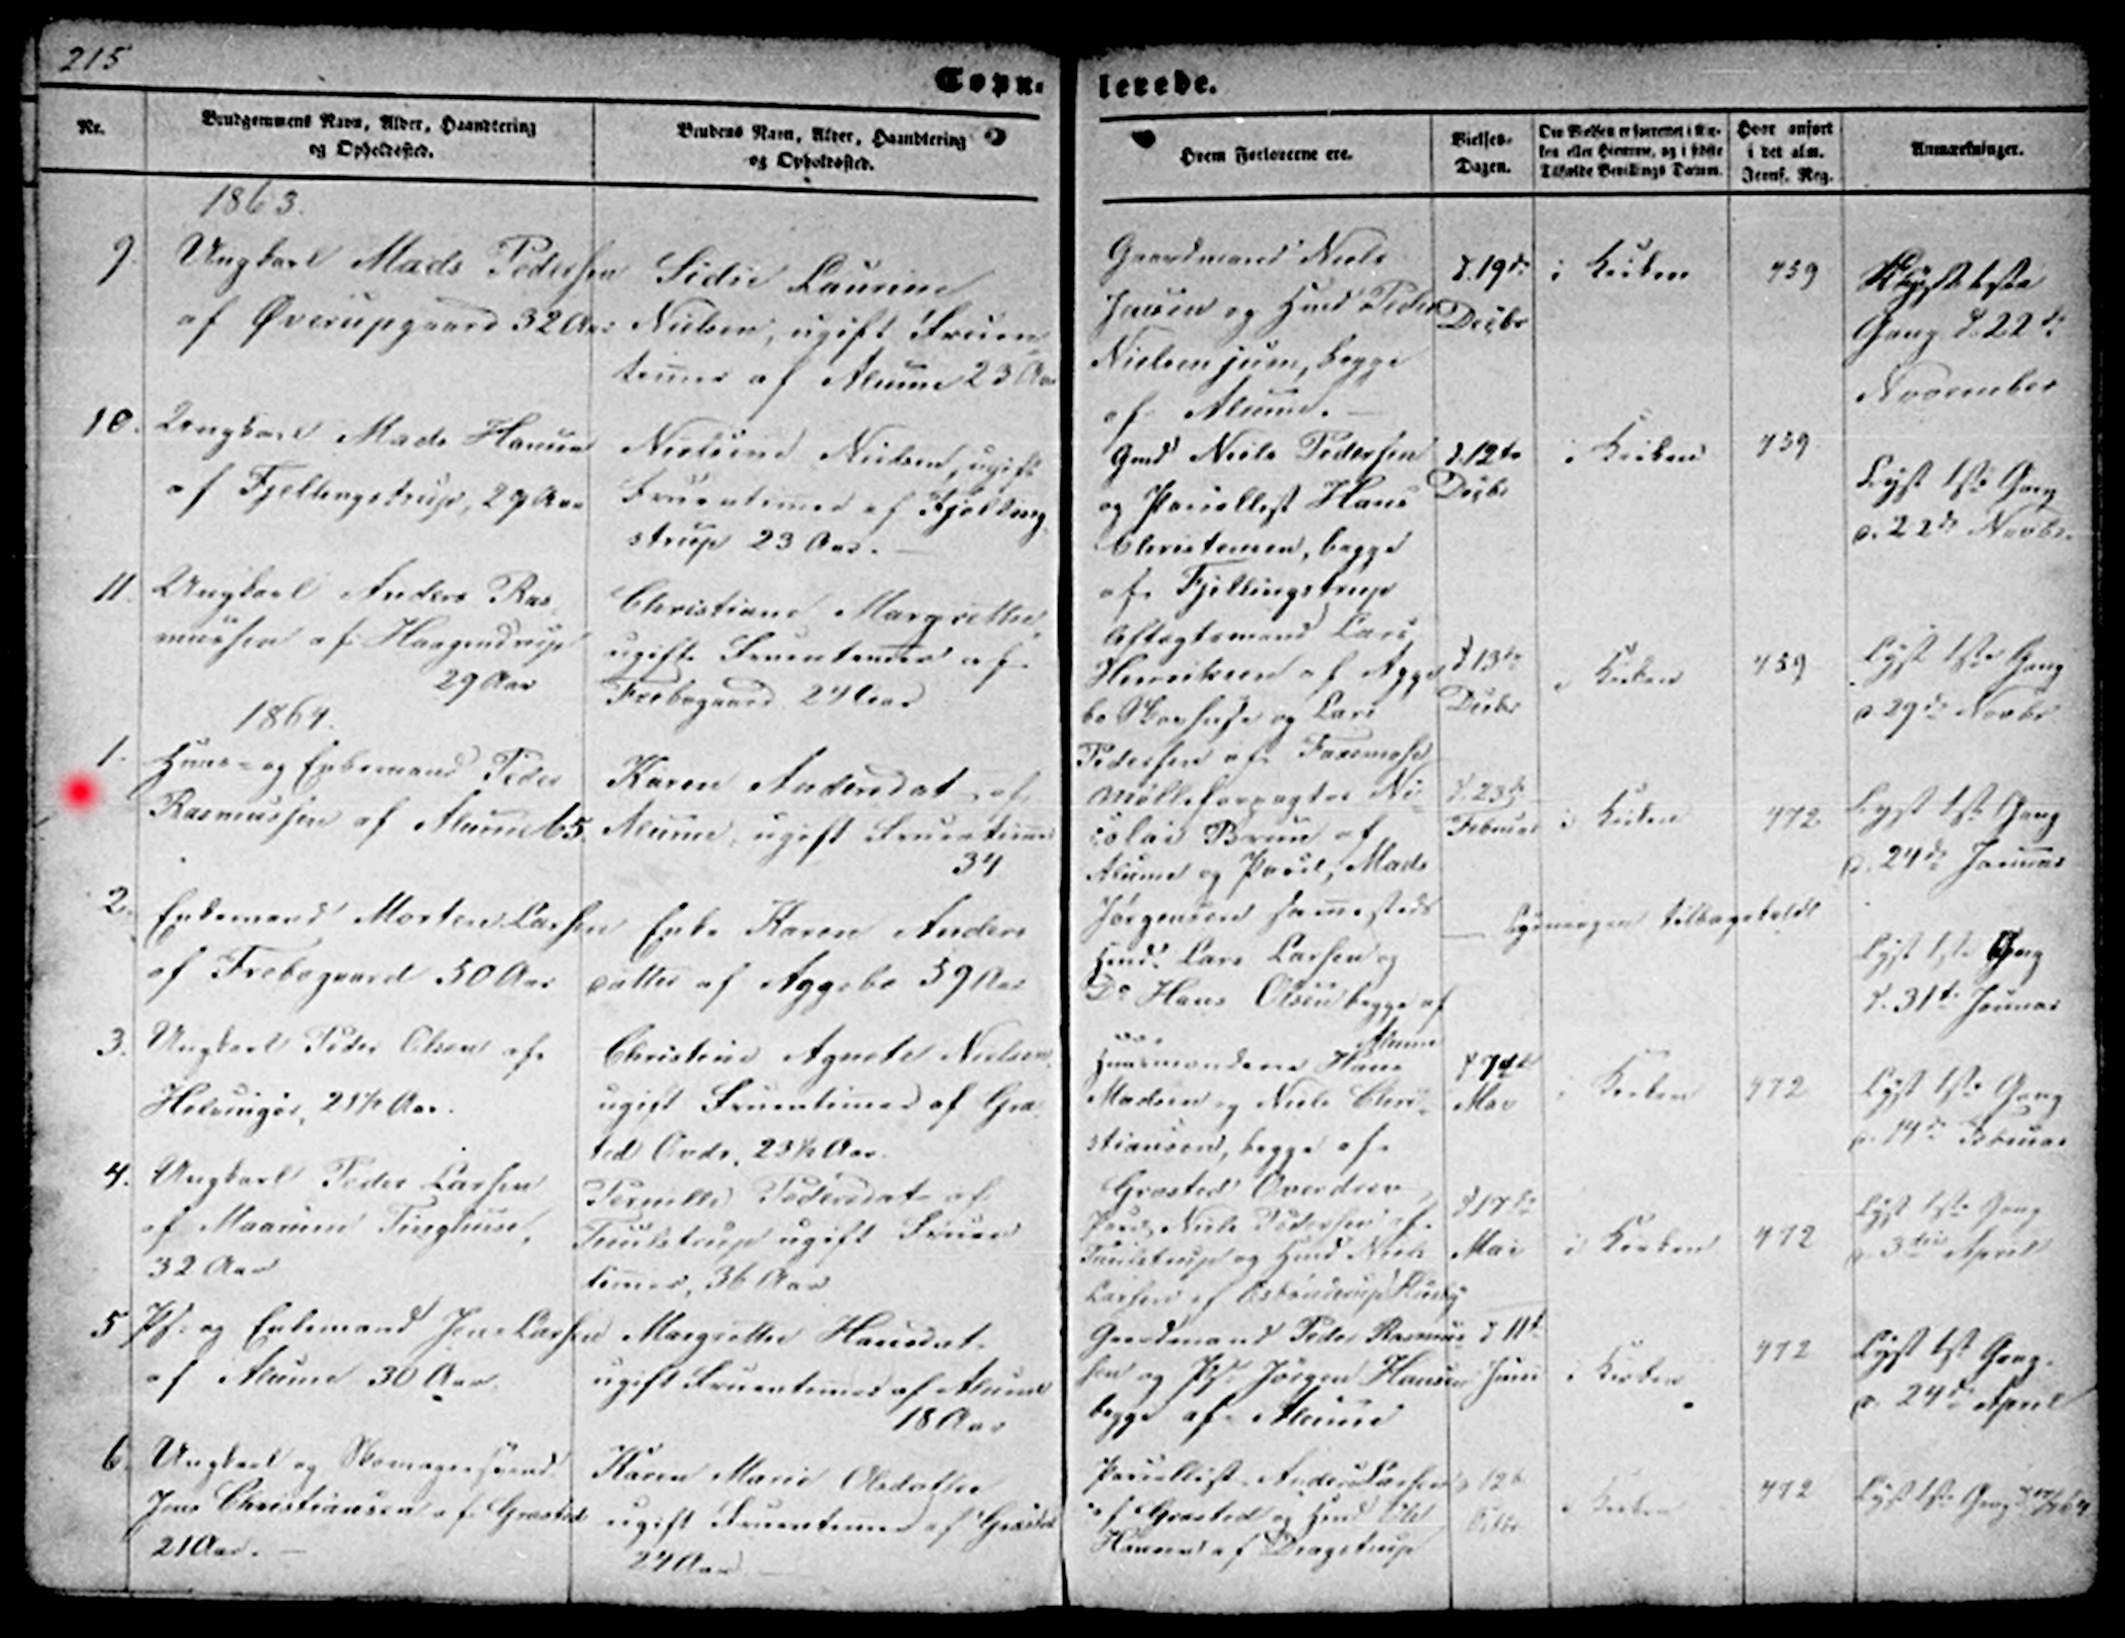 215
Copu-
lerede.
Nr.
Brudgommens Navn, Alder, Haandtering
og Opholdssted.
Brudens Navn, Alder, Haandtering
og Opholdssted.
Hvem Forloverne ere.
Vielses-
Dagen.
Om Vielsen er forrettet i Kir-
ken eller Hjemme, og i sidste
Tilfælde Bevillings Datum.
Hvor anført
i det alm.
Jevnf. Reg.
Anmærkninger.
1863.
9.
Ungkarl Mads Pedersen
af Øverupgaard 32 Aar
Sidse Laurine
Nielsen, ugift Fruen-
timer af Alume 23 Aar
Gaardmand Niels
Jensen og Huusmd Peder
Nielsen jun, begge
af Alume.
d. 19de
Decbr
i Kirken
459
Lyst 1ste
Gang d. 22de
November
10.
Ungkarl Mads Hansen
af Fjellingstrup, 29 Aar
Nielsine Nielsen, ugift
Fruentimer af Fjelling-
strup 23 Aar.
Gmd Niels Pedersen
og Parcellist Hans
Christensen, begge
af Fjellingstrup
d. 12te
Decbr
i Kirken
459
Lyst 1ste Gang
d. 22de Novbr.
11.
Ungkarl Anders Ras-
mussen af Haagendrup
29 Aar
Christiane Margrethe
ugift Fruentimer af
Frebogaard 24 Aar
Aftægtsmand Lars
Henriksen af Agge-
bo og Lars
Pedersen af Faremose
d. 13de
Decbr
i Kirken
459
Lyst 1ste Gang
d. 29de Novbr
1864.
1.
Huus- og Enkemand Peder
Rasmussen af Alume 65
Karen Andersdat. af
Alume, ugift Fruentimer
34
Mølleforpagter Ni-
colai Bruun af
Alume og Parcel, Mads
Jørgensen sammesteds
d. 23de
Februar
i Kirken
472
Lyst 1ste Gang
d. 24de Januar
2.
Enkemand Morten Larsen
af Frebogaard 50 Aar
Enke Karen Anders-
datter af Aggebo 59 Aar
Hmd. Lars Larsen og
Do Hans Olsen begge af
Alume
Lysningen tilbagekaldt
Lyst 1ste Gang
d. 31te Januar
3.
Ungkarl Peder Olsen af
Helsingør, 21½ Aar.
Christine Agnete Nielsen
ugift Fruentimer af Græ-
sted Ovdr. 23½ Aar.
Huusmændene Hans
Madsen og Niels Chri-
stiansen, begge af
Græsted Overdrev
d. 7de
Mai
i Kirken
472
Lyst 1ste Gang
d. 14de Februar
4.
Ungkarl Peder Larsen
af Maarum Tinghuse,
32 Aar
Pernille Pedersdat. af
Tuulstrup ugift Fruen-
timer, 36 Aar
Parc. Niels Pedersen af
Tuulstrup og Hmd Niels
Larsen af Esbønderup
d. 17de
Mai
i Kirken
472
Lyst 1ste Gang
d. 3die April
5.
og Enkemand Jens Larsen
af Alume 30 Aar.
Margrethe Hansdat.
ugift Fruentimer af Alume
18 Aar
Gaardmand Peder Rasmus-
sen og Jørgen Hansen
begge af Alume
d. 11te
Juni
i Kirken
472
Lyst 1ste Gang
d. 24de April
6.
Ungkarl og Skomagersvend
Jens Christiansen af Græsted
21 Aar.
Karen Marie Olsdatter
ugift Fruentimer af Græsted
24 Aar
Parcellist Anders Larsen
af Græsted og Hmd Ole
Hansen af Dragstrup
d. 12te
i Kirken
472
Lyst 1ste Gang